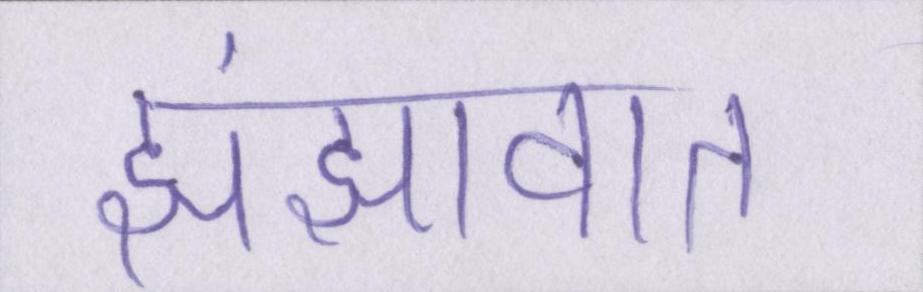 झंझावात